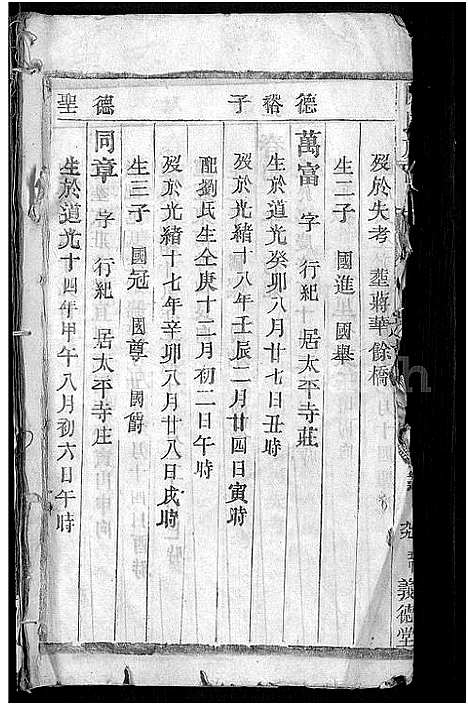 歿於失考 塟蔣華餘橋
生二子 國進 國舉
德裕子
萬富 字 行紀十 居太平寺莊
生於道光癸卯八月廿七日丑時
歿於光緒十八年壬辰二月廿四日寅時
配劉氏生仝庚十二月初二日午時
歿於光緒十七年辛卯八月廿八日戌時
生三子 國冠 國尊 國爵
德聖
同章 字 行紀十 居太平寺庄
生於道光十四年甲午八月初六日午時
義德堂